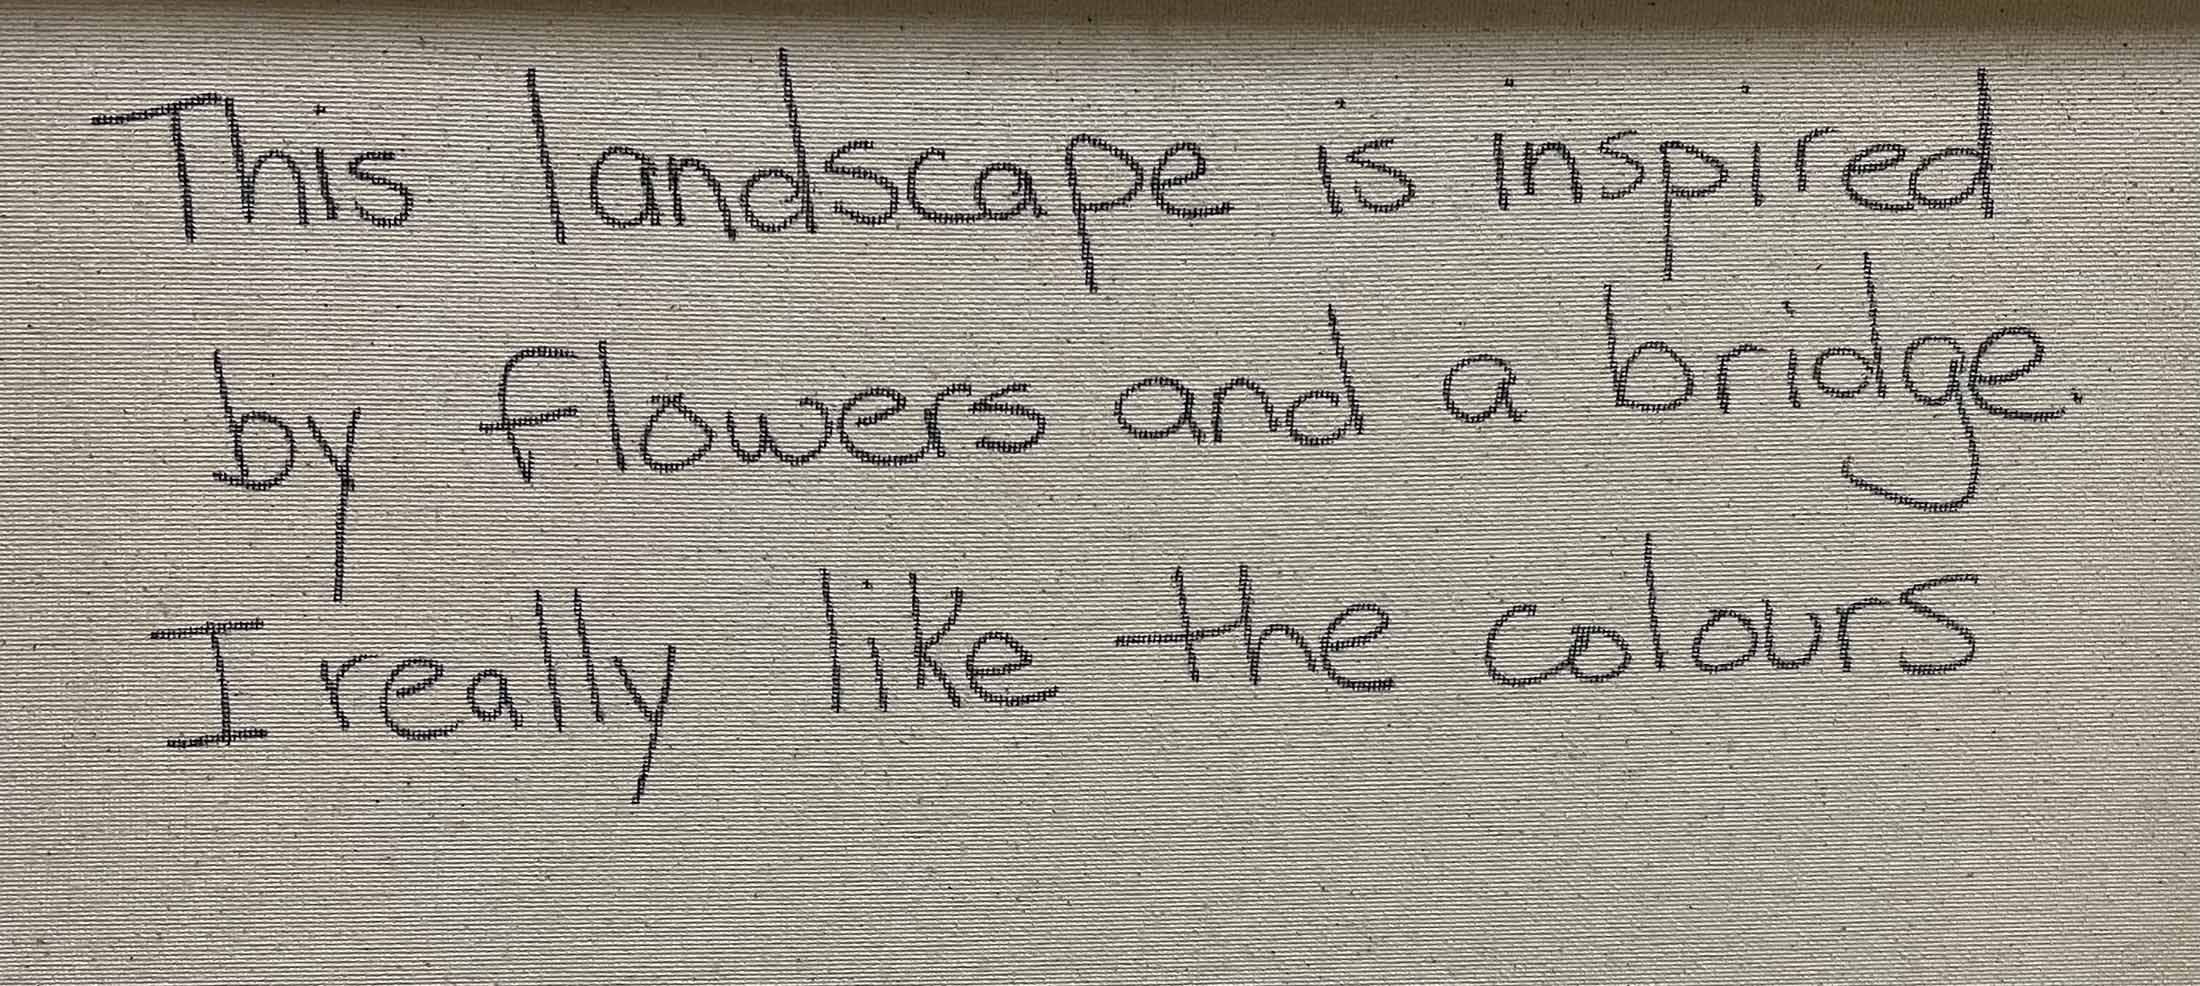 This landscape is inspired
by flowers and a bridge.
I really like the colours